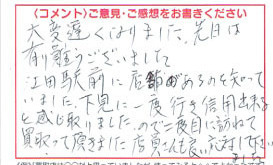 〈コメント〉ご意見・ご感想をお書きください
大変遅くなりました。先日は
有り難うございました
江田駅前に店舗があるのを知って
いました。下見に一度行き信用出来る
と感じ取りました。ので二度目に訪ねて
買取って頂きました店員さんも良い応対して